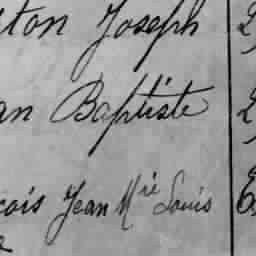 ton Joseph
an Baptiste
çois Jean Mie Louis